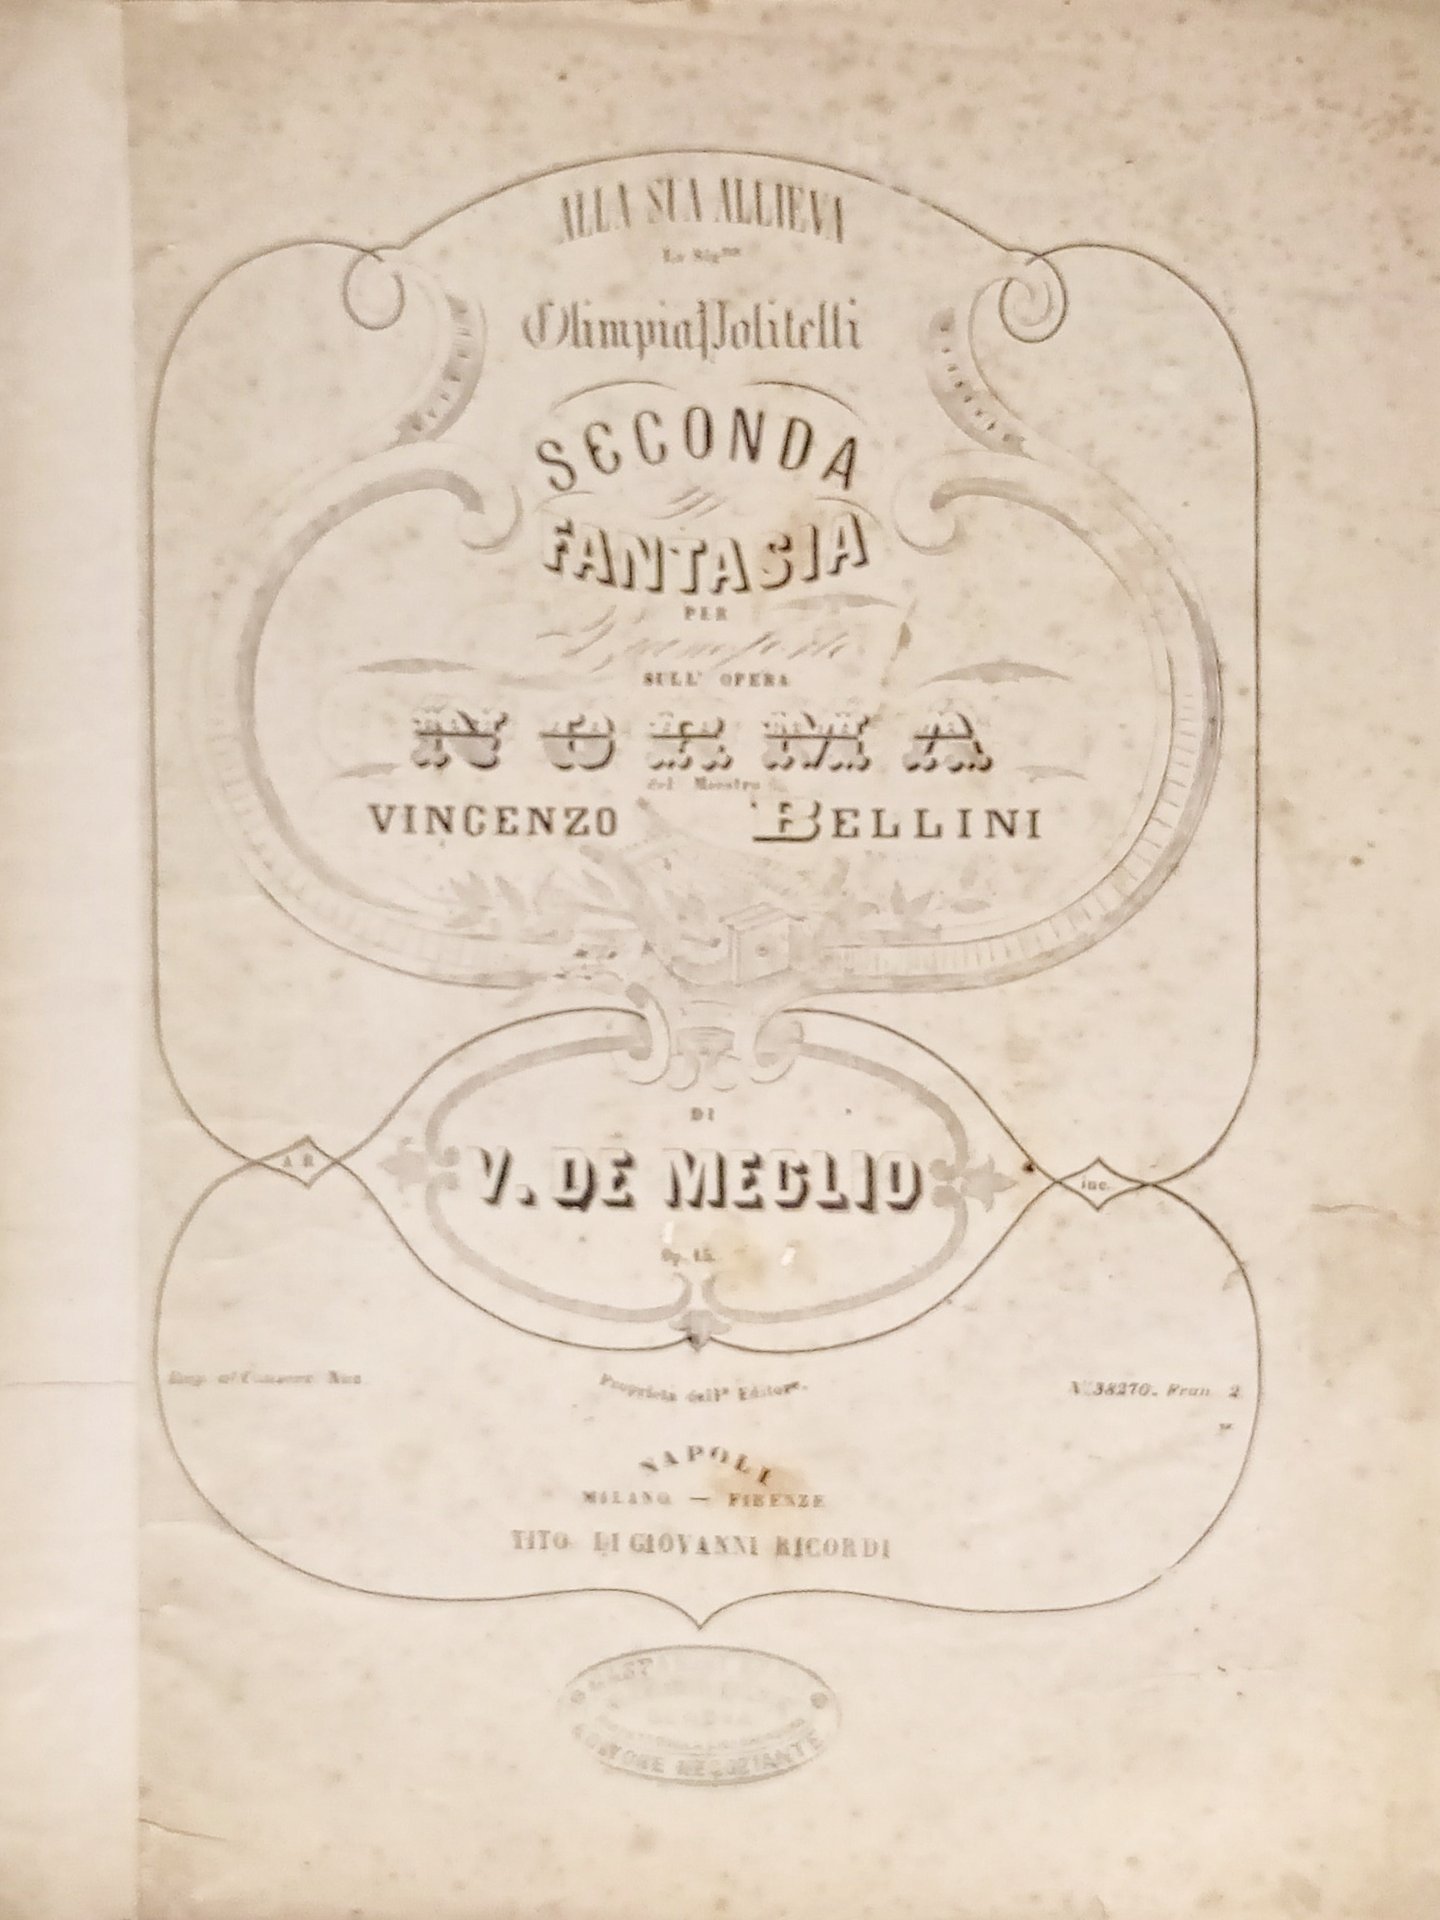 ALLA SUA ALLIEVA
La Sig.na
Olimpia Politelli
SECONDA
FANTASIA
PER
Pianoforte
SULL' OPERA
NORMA
del Maestro
VINCENZO BELLINI
DI
V. DE MEGLIO
Op. 15.
A R inc.
Proprietà dell' Editore.
N.º 38270. Fran. 2
NAPOLI
MILANO — FIRENZE
TITO DI GIOVANNI RICORDI
EDITORE NEGOZIANTE